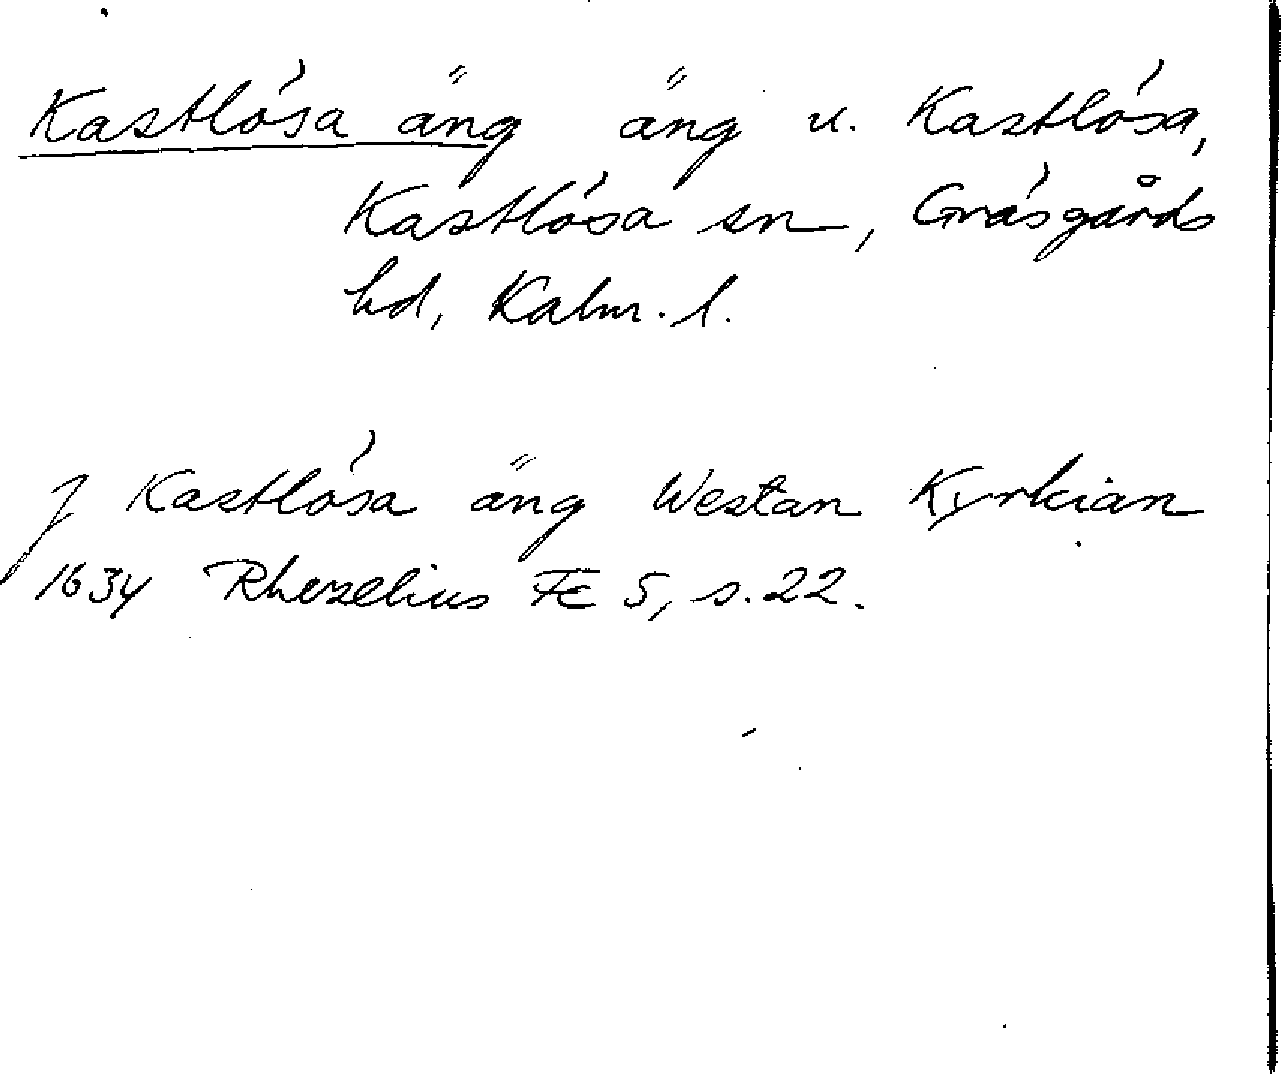 Kastlösa äng äng u. Kastlösa,
Kastlösa sn, Gräsgårds
hd, Kalm. l.
J Kastlösa äng Westan Kyrkian
1634 Rhezelius Fc 5, s. 22.